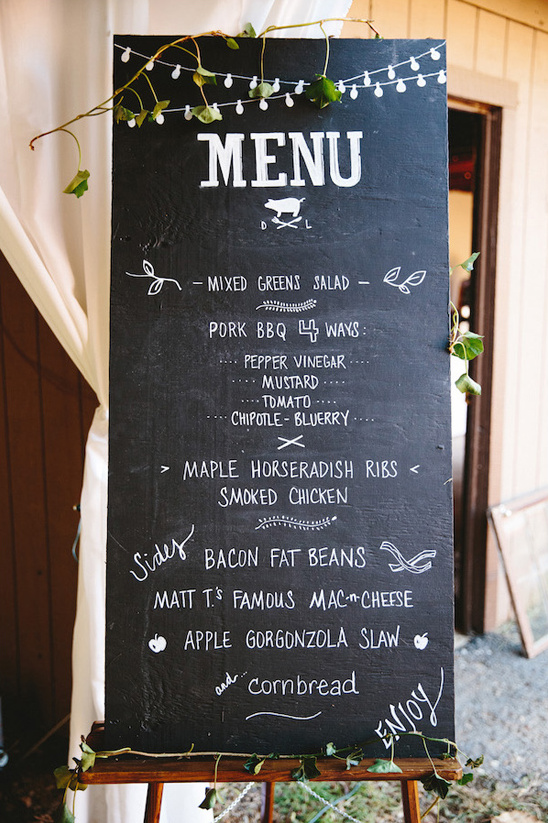 MENU
D L
- MIXED GREENS SALAD -
PORK BBQ 4 WAYS:
.... PEPPER VINEGAR ....
.... MUSTARD ....
.... TOMATO ....
.... CHIPOTLE-BLUERRY ....
> MAPLE HORSERADISH RIBS <
SMOKED CHICKEN
Sides
BACON FAT BEANS
MATT T.'s FAMOUS MAC-n-CHEESE
APPLE GORGONZOLA SLAW
and... cornbread
ENJOY